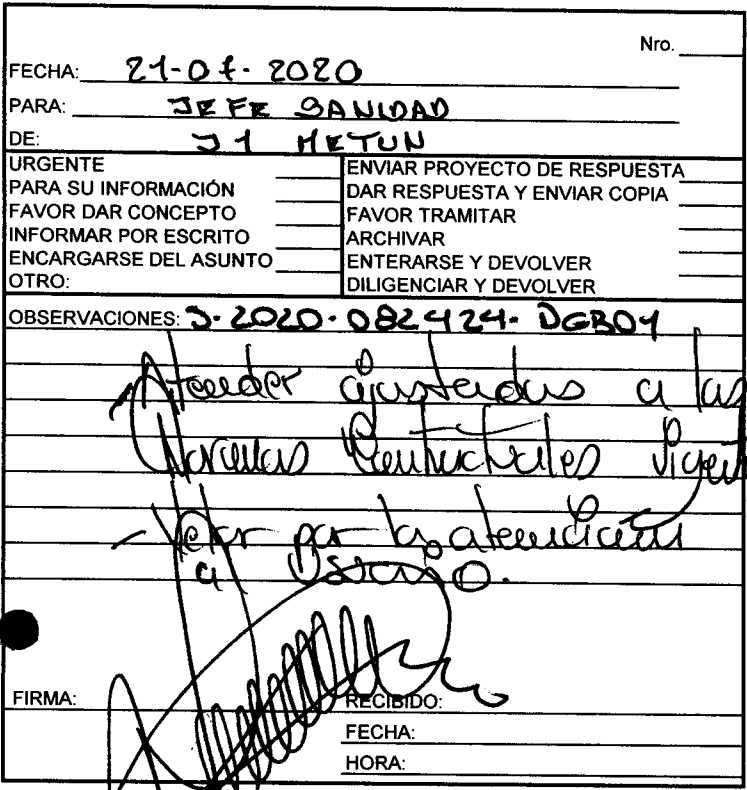 Nro.
FECHA: 21-07-2020
PARA: JEFE SANIDAD
DE: J1 METUN
URGENTE
PARA SU INFORMACIÓN
FAVOR DAR CONCEPTO
INFORMAR POR ESCRITO
ENCARGARSE DEL ASUNTO
OTRO:
ENVIAR PROYECTO DE RESPUESTA
DAR RESPUESTA Y ENVIAR COPIA
FAVOR TRAMITAR
ARCHIVAR
ENTERARSE Y DEVOLVER
DILIGENCIAR Y DEVOLVER
OBSERVACIONES: S-2020-082424-DGB04
Atender ajustados a las
Normas Contractuales
- Velar por la atención
a Usuario.
FIRMA:
RECIBIDO:
FECHA:
HORA: